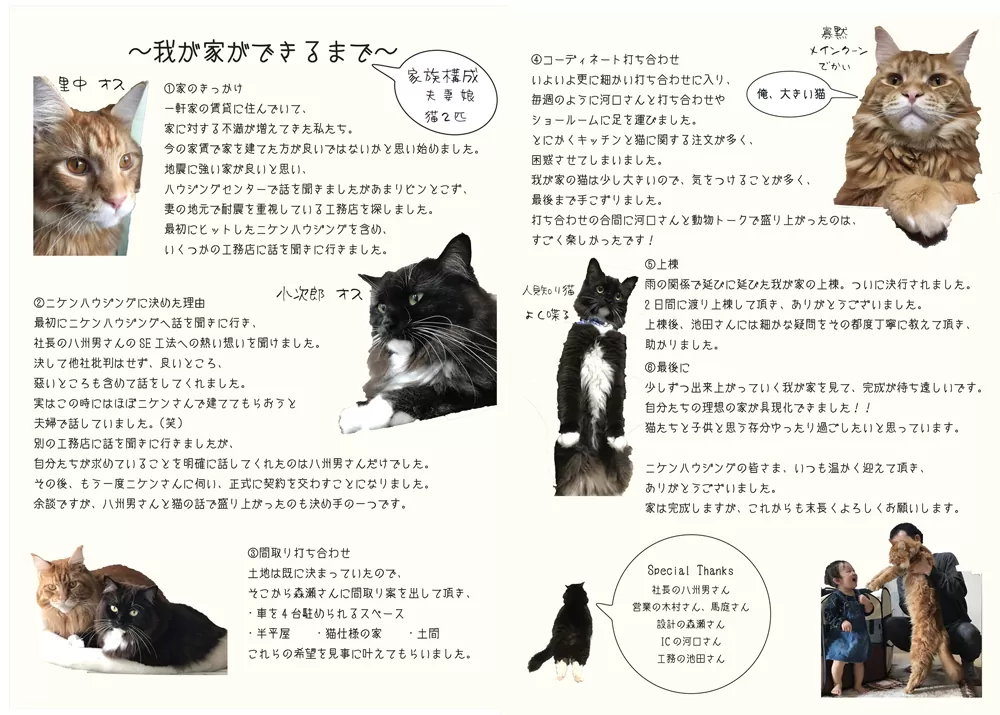 ～我が家ができるまで～
家族構成
夫 妻 娘
猫２匹
里中 オス
①家のきっかけ
一軒家の賃貸に住んでいて、
家に対する不満が増えてきた私たち。
今の家賃で家を建てた方が良いではないかと思い始めました。
地震に強い家が良いと思い、
ハウジングセンターで話を聞きましたがあまりピンとこず、
妻の地元で耐震を重視している工務店を探しました。
最初にヒットしたニケンハウジングを含め、
いくつかの工務店に話を聞きに行きました。
小次郎 オス
②ニケンハウジングに決めた理由
最初にニケンハウジングへ話を聞きに行き、
社長の八州男さんのSE工法への熱い想いを聞けました。
決して他社批判はせず、良いところ、
悪いところも含めて話をしてくれました。
実はこの時にはほぼニケンさんで建ててもらおうと
夫婦で話していました。(笑)
別の工務店に話を聞きに行きましたが、
自分たちが求めていることを明確に話してくれたのは八州男さんだけでした。
その後、もう一度ニケンさんに伺い、正式に契約を交わすことになりました。
余談ですが、八州男さんと猫の話で盛り上がったのも決め手の一つです。
③間取り打ち合わせ
土地は既に決まっていたので、
そこから森瀬さんに間取り案を出して頂き、
・車を４台駐められるスペース
・半平屋 ・猫仕様の家 ・土間
これらの希望を見事に叶えてもらいました。
④コーディネート打ち合わせ
いよいよ更に細かい打ち合わせに入り、
毎週のように河口さんと打ち合わせや
ショールームに足を運びました。
とにかくキッチンと猫に関する注文が多く、
困惑させてしまいました。
我が家の猫は少し大きいので、気をつけることが多く、
最後まで手こずりました。
打ち合わせの合間に河口さんと動物トークで盛り上がったのは、
すごく楽しかったです！
寡黙
メインクーン
でかい
俺、大きい猫
人見知り猫
よく喋る
⑤上棟
雨の関係で延びに延びた我が家の上棟。ついに決行されました。
２日間に渡り上棟して頂き、ありがとうございました。
上棟後、池田さんには細かな疑問をその都度丁寧に教えて頂き、
助かりました。
⑥最後に
少しずつ出来上がっていく我が家を見て、完成が待ち遠しいです。
自分たちの理想の家が具現化できました！！
猫たちと子供と思う存分ゆったり過ごしたいと思っています。
ニケンハウジングの皆さま、いつも温かく迎えて頂き、
ありがとうございました。
家は完成しますが、これからも末長くよろしくお願いします。
Special Thanks
社長の八州男さん
営業の木村さん、馬庭さん
設計の森瀬さん
ICの河口さん
工務の池田さん